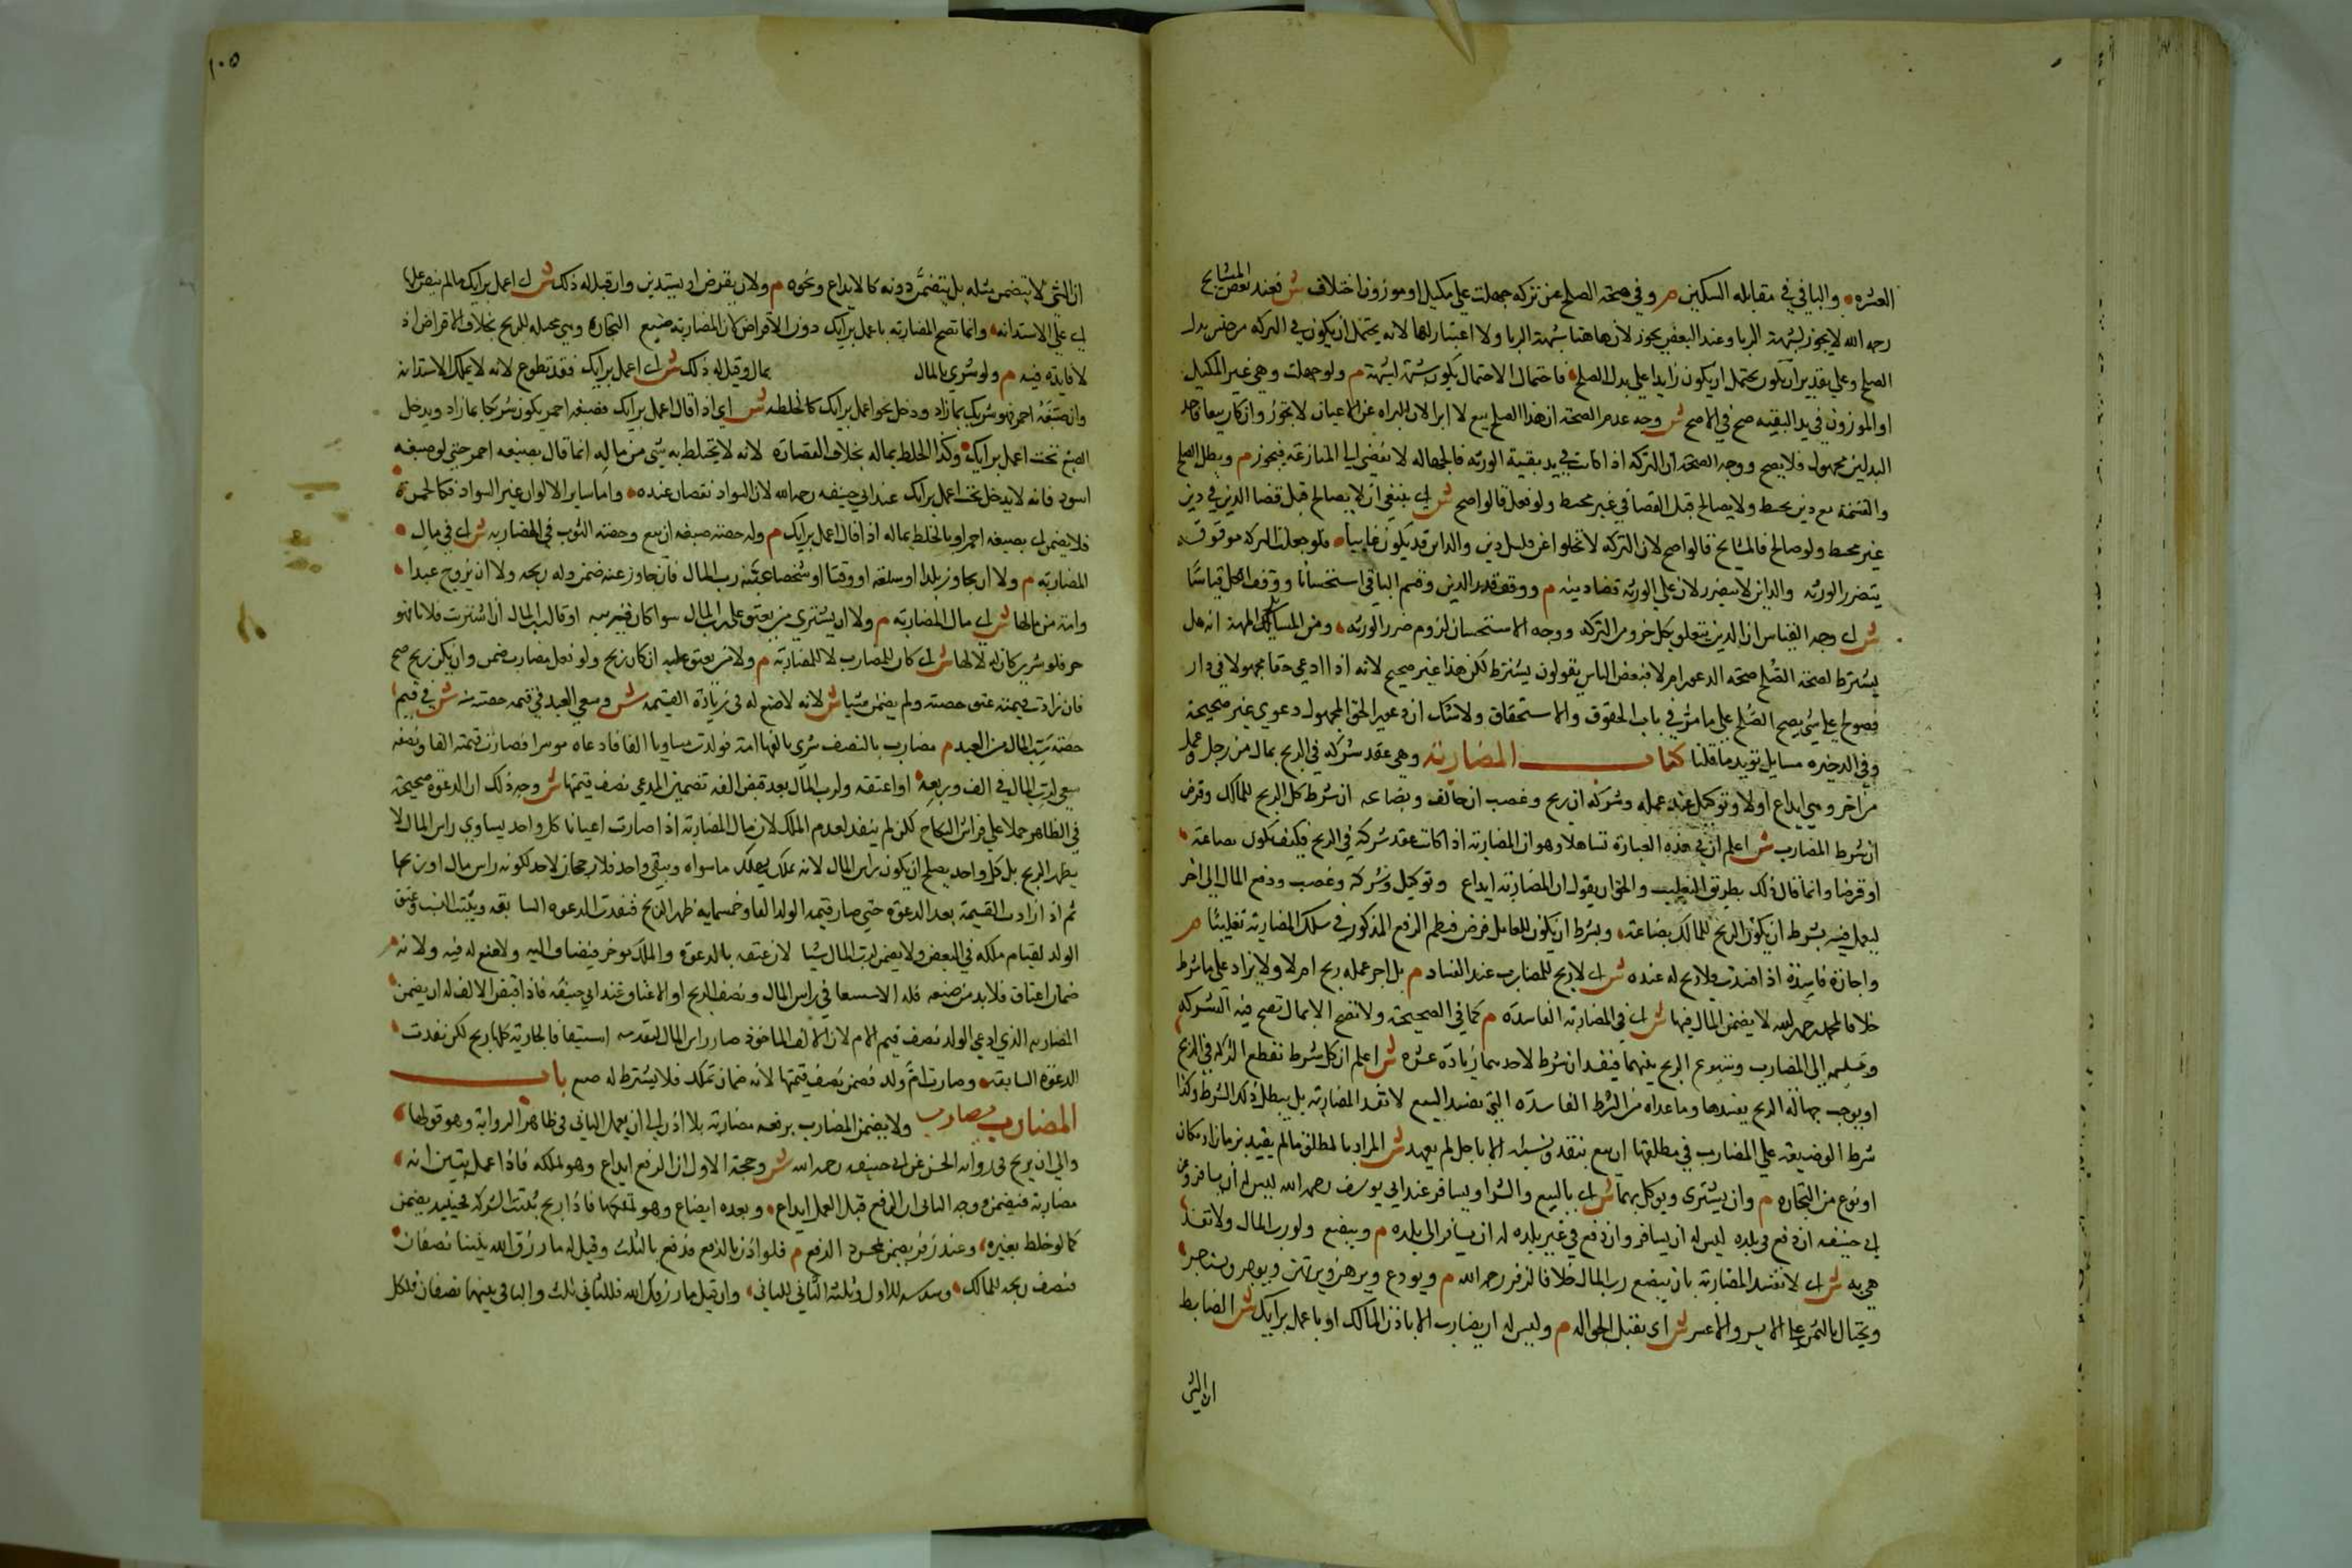 العشرة والباقي في مقابلة السكين م وفي صحة الصلح عن تركة جهلت على مكيل او موزون اختلاف ش فعند بعض المشايخ
رحمه الله لا يجوز لشبهة الربا وعند البعض يجوز لان هاهنا شبهة الشبهة ولا اعتبار لها لانه يحتمل ان يكون في التركة من جنس بدل
الصلح وعلى تقدير ان يكون يحتمل ان يكون زايدا على بدل الصلح فاحتمال الاحتمال يكون شبهة الشبهة م ولو جهلت وهي غير المكيل
او الموزون في يد البقية صح في الاصح ش وجه عدم الصحة ان هذا الصلح بيع لا ابرا لان البراه عن الاعيان لا يجوز وان كان بيعا فاحد
البدلين مجهول فلا يصح ووجه الصحة ان التركة اذا كانت في يد بقية الورثه فالجهاله لا تفضي الى المنازعة فيجوز م وبطل الصلح
والقسمة مع دين محيط ولا يصالح قبل القضا في غير محيط ولو فعل قالوا صح ش اي ينبغي ان لا يصالح قبل قضا الدين في دين
غير محيط ولو صالح فالمشايخ قالوا صح لان التركة لا تخلوا عن قليل دين والداين قد يكون غايبا فلو جعلت التركه موقوفة
يتضرر الورثه والداين لا يتضرر لان على الورثة قضا دينه م ووقف قدر الدين وقسم الباقي استحسانا ووقف الكل قياسا
ش اي وجه القياس ان الدين يتعلق بكل جزو من التركه ووجه الاستحسان لزوم ضرر الورثه ومن المسايل المهمة انه هل
يشترط لصحة الصلح صحة الدعوى ام لا فبعض الناس يقولون يشترط لكن هذا غير صحيح لانه اذا ادعى حقا مجهولا في دار
فصولح على شي يصح الصلح على ما مر في باب الحقوق والاستحقاق ولا شك ان دعوى الحق المجهول دعوي غير صحيحة
وفي الدخيره مسايل تويد ما قلنا كتاب المضاربة وهي عقد شركة في الربح بمال من رجل وعمل
من اخر وهي ايداع اولا وتوكيل عند عمله وشركة ان ربح وغصب ان خالف وبضاعه ان شرط كل الربح للمالك وقرض
ان شرط للمضارب ش اعلم ان في هذه العبارة تساهلا وهو ان المضاربة اذا كانت عقد شركة في الربح فكيف يكون بضاعة
او قرضا وانما قال ذلك بطريق التغليب والحق ان يقول ان المضاربة ايداع وتوكيل وشركة وغصب ودفع المال الى اخر
ليعمل فيه بشرط ان يكون الربح للمالك بضاعة وبشرط ان يكون للعامل قرض فنظم الدفع المذكور في سلك المضاربة تغليبا م
واجازة فاسدة اذا فسدت فلا ربح له عنده ش اي لا ربح للمضارب عند الفساد م بل اجر عمله ربح ام لا ولا يزاد على ما شرط
خلافا لمحمد رحمه الله لا يضمن المال فيها ش اي في المضاربة الفاسدة م كما في الصحيحة ولا تصح الا بمال تصح فيه الشركة
وتسليمه الى المضارب وشيوع الربح بينهما فيفسد ان شرط لاحدهما زيادة عشرة ش اعلم ان كل شرط تقطع الشركة في الربح
او يوجب جهالة الربح يفسدها وما عداه من الشرط الفاسدة التي يفسد البيع لا تفسد المضاربة بل يبطل ذلك الشرط وكذا
شرط الوضيعة على المضارب في مطلقها ان يبيع بنقد ونسئه الا باجل لم يعهد ش المراد بالمطلق ما لم يقيد بزمان او مكان
او نوع من التجاره م وان يشترى ويوكل بهما ش اي بالبيع والشرا ويسافر عند ابي يوسف رحمه الله ليس له ان يسافر وعن
ابي حنيفه ان دفع في بلده ليس له ان يسافر وان دفع في غير بلده له ان يسافر الى بلده م ويبضع ولو رب المال ولا تفسد
هي به ش اي لا تفسد المضاربة بان يبضع رب المال خلافا لزفر رحمه الله م ويودع ويرهن ويرتهن ويوجر ويستاجر
ويحتال بالثمن على الايسر والاعسر ش اي يقبل الحواله م وليس له ان يضارب الا باذن المالك او باعمل برايك ش الضابط
ان الشي
١٠٥
ان الشي لا يتضمن مثله بل يتضمن دونه كالايداع ونحوه م ولا ان يقرض او يستدين وان قيل له ذلك ش اي اعمل برايك ما لم ينص عليها
اي على الاستدانه وانما تصح المضاربه باعمل برايك دون الاقراض لان المضاربة صنيع التجارة وهي مجملة للربح بخلاف الاقراض اذ
لا فايدة فيه م ولو شرى بالمال بمال وقيل له ذلك ش اي اعمل برايك فقد تطوع لانه لا يملك الاستدانة
وان صبغه احمر فهو شريك بما زاد ودخل نحو اعمل برايك كالخلطه ش اي اذا قال اعمل برايك فصبغه احمر يكون شريكا بما زاد ويدخل
الصبغ تحت اعمل برايك وكذا الخلط بماله بخلاف القصارة لانه لا يختلط به شي من ماله انما قال بصبغه احمر حتى لو صبغه
اسود فانه لا يدخل تحت اعمل برايك عند ابي حنيفه رحمه الله لان السواد نقصان عنده واما ساير الالوان غير السواد فكالحمرة
فلا يضمن اي بصبغه احمر او بالخلط بماله اذا قال اعمل برايك م وله حصة صبغه ان بيع وحصة الثوب في المضاربه ش اي في مال
المضاربة م ولا ان يجاوز بلدا او سلعة او وقتا او شخصا عينه رب المال فان جاوز عنه ضمن وله ربحه ولا ان يزوج عبدا
وامة من مالها ش اي مال المضاربه م ولا ان يشتري من يعتق على رب المال سوا كان قريبه او قال رب المال ان اشتريت فلانا فهو
حر فلو شرى كان له لا لها ش اي كان للمضارب لا للمضاربة م ولا من يعتق عليه ان كان ربح ولو فعل مضارب ضمن وان يكن ربح صح
فان زادت قيمته عتق حصته ولم يضمن شيا ش لانه لا صنع له في زيادة القيمه ش وسعى العبد في قيمه حصته منه ش في قيم
حصة رب المال من العبد م مضارب بالنصف شرى بالفها امة فولدت مساويا الفا فادعاه موسرا فصارت قيمته الفا ونصفه
سعى لرب المال في الف وربعه او اعتقه ولرب المال بعد قبض الفه تضمين المدعي نصف قيمتها ش وجه ذلك ان الدعوة صحيحة
في الظاهر حملا على فراش النكاح لكن لم ينفذ لعدم الملك لان مال المضاربة اذا صارت اعيانا كل واحد يساوي راس المال لا
يظهر الربح بل كل واحد يصلح ان يكون راس المال لانه يهلك ما سواه ويبقى واحد فلا رجحان لاحد لكونه راس مال او ربحا
ثم اذا زادت القسيمة بعد الدعوة حتى صار قيمة الولد الفا وخمسمايه ظهر الربح فنفدت الدعوه السابقه ويثبت النسب وعتق
الولد لقيام ملكه في البعض ولا يضمن لرب المال شيا لان عتقه بالدعوة والملك موخر فيضاف اليه ولا صنع له فيه ولانه
ضمان اعتاق فلابد من صنعه فله الاستسعا في راس المال ونصف الربح او الاعتاق عند ابي حنيفه فاذا قبض الالف له ان يضمن
المضاربه الذي ادعى الولد نصف قيم الام لان الالف الماخوذ صار راس المال استيفا فالجارية كلها ربح لكن نفدت
الدعوه السابقه وصارت ام ولد فضمن نصف قيمتها لانه ضمان تملك فلا يشترط له صنع باب
المضارب يضارب ولا يضمن المضارب برفعه مضاربة بلا اذن الى ان يعمل الثاني في ظاهر الرواية وهو قولهما
والى ان يربح في رواية الحسن عن ابي حنيفه رحمه الله ش وجحة الاول ان الدفع ايداع وهو لملكه فاذا عمل يتبين انه
مضاربة فيضمن ووجه الثاني ان الدفع قبل العمل ايداع وبعده ايضاع وهو فاذا ربح ثبتت الشركه فحينيد يضمن
كما لو خلط بغيره وعند زفر يضمن لمجرد الدفع م فلو اذن بالدفع فدفع بالثلث وقيل له ما رزق الله بيننا نصفان
فنصف ربحه للمالك وسدسه للاول وثلثه الثاني للثاني وان قيل ما رزقك الله فللثاني ثلث والباقي بينهما نصفان فلكل